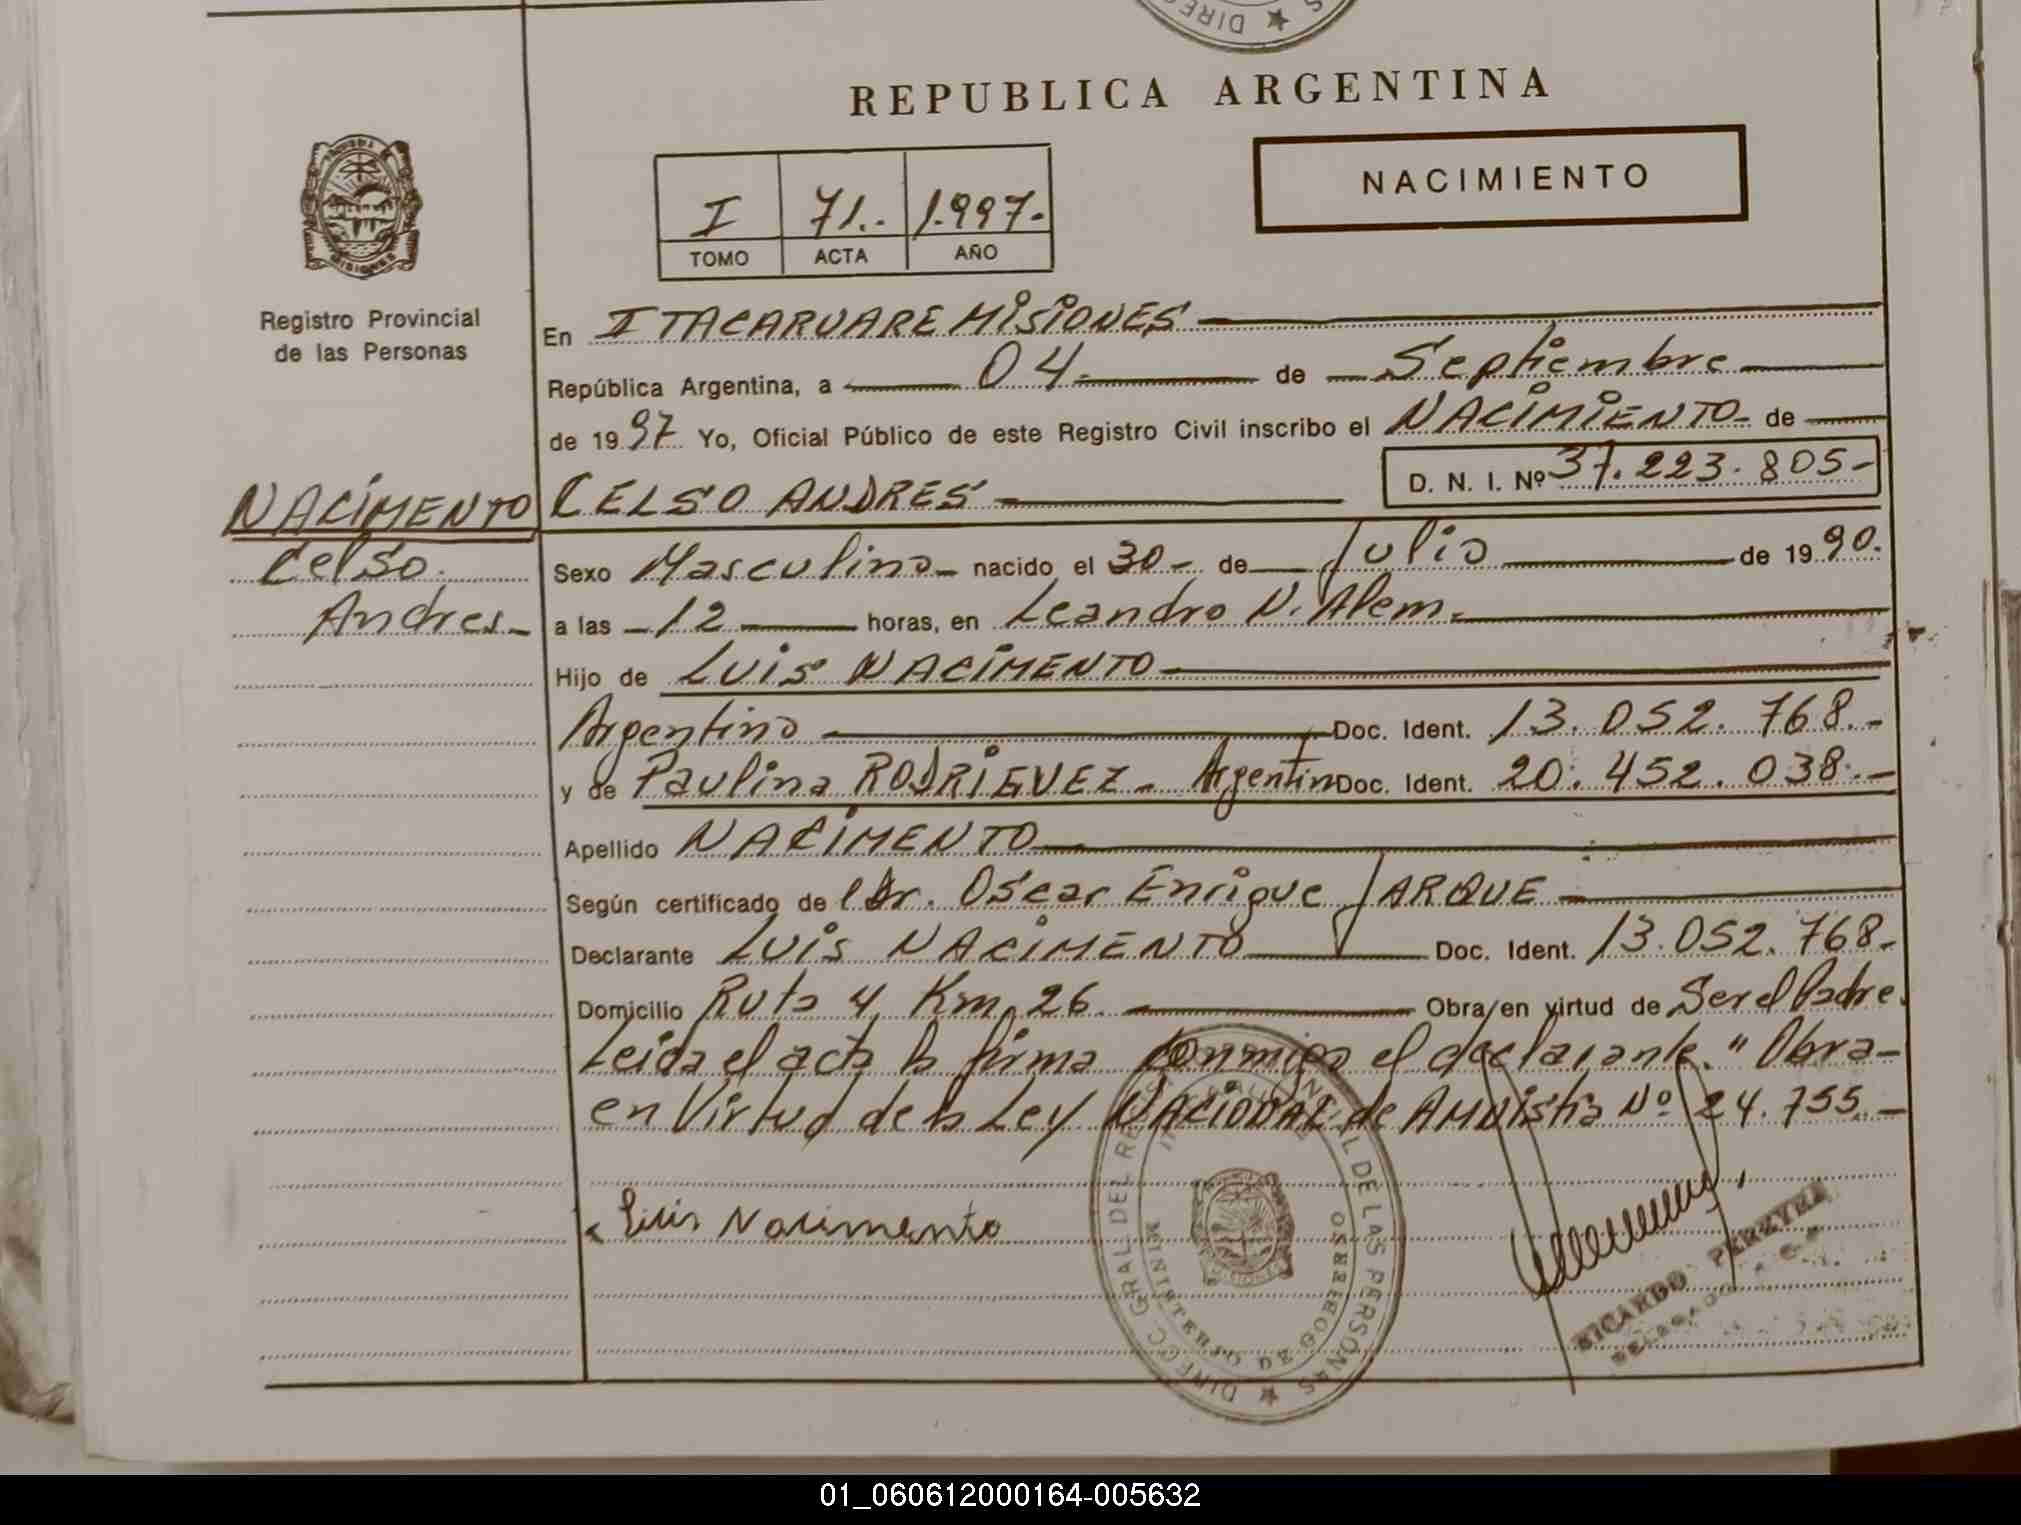 REPUBLICA ARGENTINA
NACIMIENTO
I 71.- 1.997.-
TOMO ACTA AÑO
Registro Provincial
de las Personas
En ITACARUARE MISIONES
República Argentina, a 04 de Septiembre
de 1997 Yo, Oficial Público de este Registro Civil inscribo el NACIMIENTO de
D. N. I. Nº 37.223.805-
NACIMENTO CELSO ANDRES
Celso Sexo Masculino nacido el 30 de Julio de 1990.
Andres a las 12 horas, en Leandro N. Alem.
Hijo de LUIS NACIMENTO
Argentino Doc. Ident. 13.052.768.-
y de Paulina RODRIGUEZ - Argentin Doc. Ident. 20.452.038.-
Apellido NACIMENTO
Según certificado de l Dr. Oscar Enrique JARQUE
Declarante LUIS NACIMENTO Doc. Ident. 13.052.768-
Domicilio Ruta 4 Km 26. Obra/en virtud de Ser el Padre.
Leida el acta la firma conmigo el declarante." Obra-
en Virtud de la Ley NACIONAL de AMNistia Nº 24.755.-
Luis Nacimento
DIRECC. GRAL. DEL REGISTRO PROVINCIAL DE LAS PERSONAS
MINISTERIO DE GOBIERNO
MISIONES
RICARDO PEREYRA
01_060612000164-005632